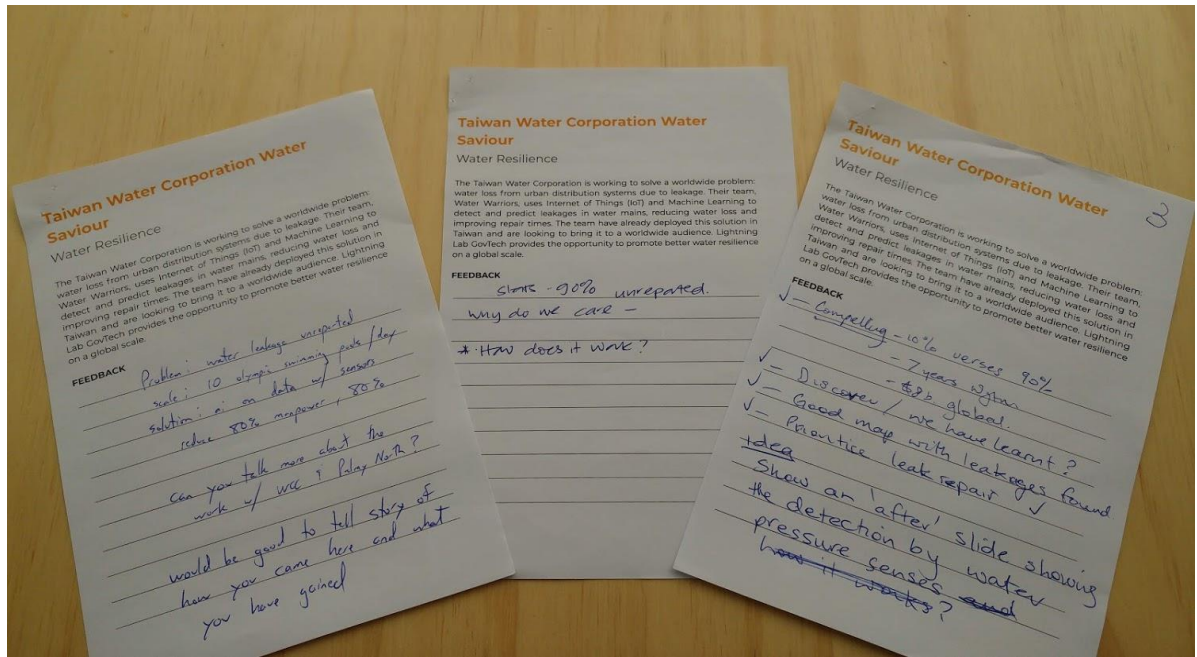 Taiwan Water Corporation Water
Saviour
Water Resilience
The Taiwan Water Corporation is working to solve a worldwide problem:
water loss from urban distribution systems due to leakage. Their team,
Water Warriors, uses Internet of Things (IoT) and Machine Learning to
detect and predict leakages in water mains, reducing water loss and
improving repair times. The team have already deployed this solution in
Taiwan and are looking to bring it to a worldwide audience. Lightning
Lab GovTech provides the opportunity to promote better water resilience
on a global scale.
FEEDBACK
Problem: water leakage unreported
scale: 10 olympic swimming pools/day
solution: ai on data w/ sensors
reduce 80% manpower, 80%
can you talk more about the
work w/ WCC & Palmy North?
would be good to tell story of
how you came here and what
you have gained
Taiwan Water Corporation Water
Saviour
Water Resilience
The Taiwan Water Corporation is working to solve a worldwide problem:
water loss from urban distribution systems due to leakage. Their team,
Water Warriors, uses Internet of Things (IoT) and Machine Learning to
detect and predict leakages in water mains, reducing water loss and
improving repair times. The team have already deployed this solution in
Taiwan and are looking to bring it to a worldwide audience. Lightning
Lab GovTech provides the opportunity to promote better water resilience
on a global scale.
FEEDBACK
- 90% unreported.
why do we care -
* How does it work?
3
Taiwan Water Corporation Water
Saviour
Water Resilience
The Taiwan Water Corporation is working to solve a worldwide problem:
water loss from urban distribution systems due to leakage. Their team,
Water Warriors, uses Internet of Things (IoT) and Machine Learning to
detect and predict leakages in water mains, reducing water loss and
improving repair times. The team have already deployed this solution in
Taiwan and are looking to bring it to a worldwide audience. Lightning
Lab GovTech provides the opportunity to promote better water resilience
on a global scale.
FEEDBACK
✓ - Compelling - 10% verses 90%
- 7 years
- $8b global.
✓ - Discover / we have learnt?
✓ - Good map with leakages found
✓ - Prioritice leak repair ✓
Idea
Show an 'after' slide showing
the detection by water
pressure senses and
how it works?